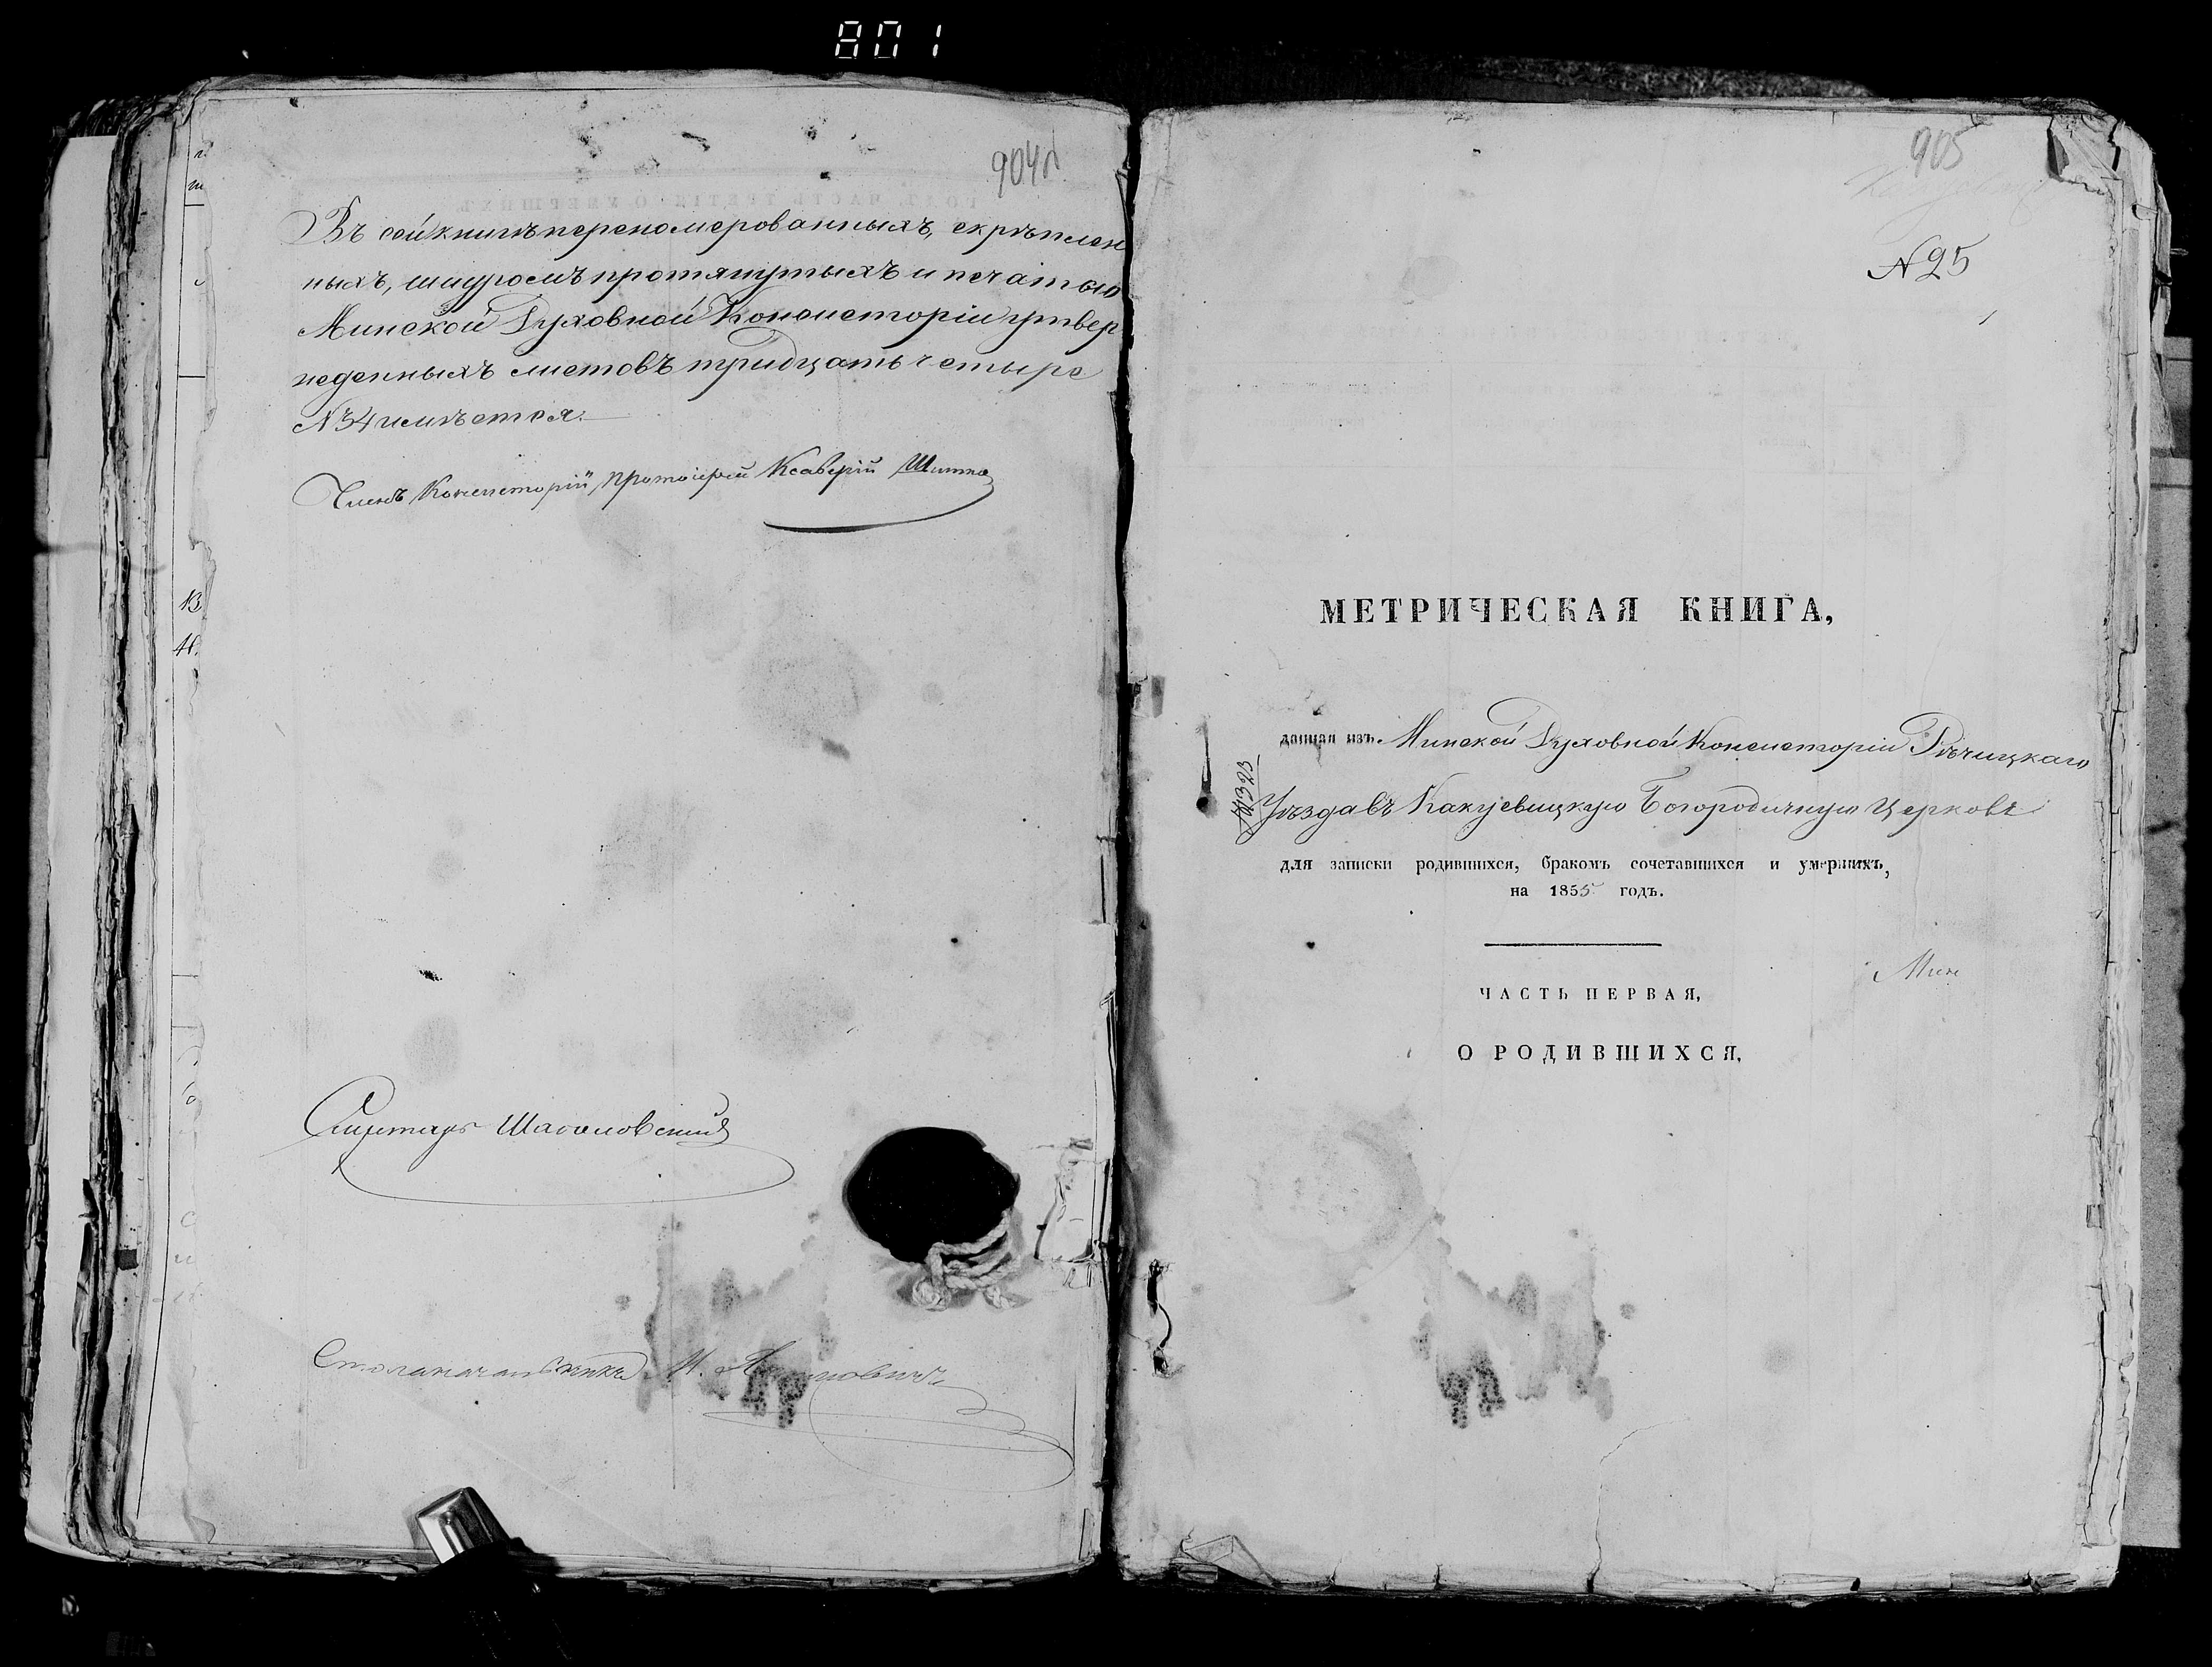 801
904
Въ сей книгѣ перенолмерованныхъ, скрѣплен
ныхъ, шнуромъ протянутыхъ и печатью
Минской Духовной Консисторіи утвер
жденныхъ листовъ тридцать четыре
№ 34 имѣется.
Членъ Консисторіи, протоіерей Ксаверій
Секретарь
Столоначальникъ
905
№ 25
МЕТРИЧЕСКАЯ КНИГА,
данная изъ Минской Духовной Консисторіи Рѣчицкаго
Уѣзда въ Какуевицкую Богородичную Церковь
№ 1323
для записки родившихся, бракомъ сочетавшихся и умершихъ,
на 1855 годъ.
Мин
ЧАСТЬ ПЕРВАЯ,
О РОДИВШИХСЯ.